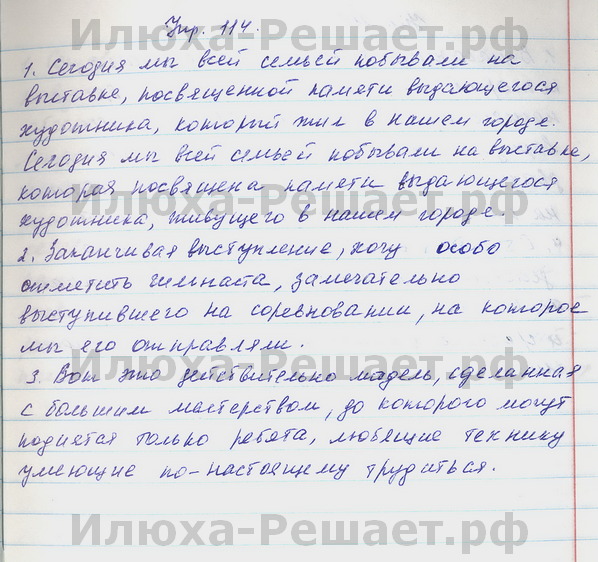 Илюха-Решает.рф
Упр. 114.
1. Сегодня мы всей семьей побывали на
выставке, посвященной памяти выдающегося
художника, который жил в нашем городе.
Сегодня мы всей семьей побывали на выставке,
которая посвящена памяти выдающегося
художника, живущего в нашем городе.
2. Заканчивая выступление, хочу особо
отметить гимнаста, замечательно
выступившего на соревновании, на которое
мы его отправляли.
3. Вот это действительно модель, сделанная
с большим мастерством, до которого могут
поднятся только ребята, любящие технику
умеющие по-настоящему трудиться.
Илюха-Решает.рф